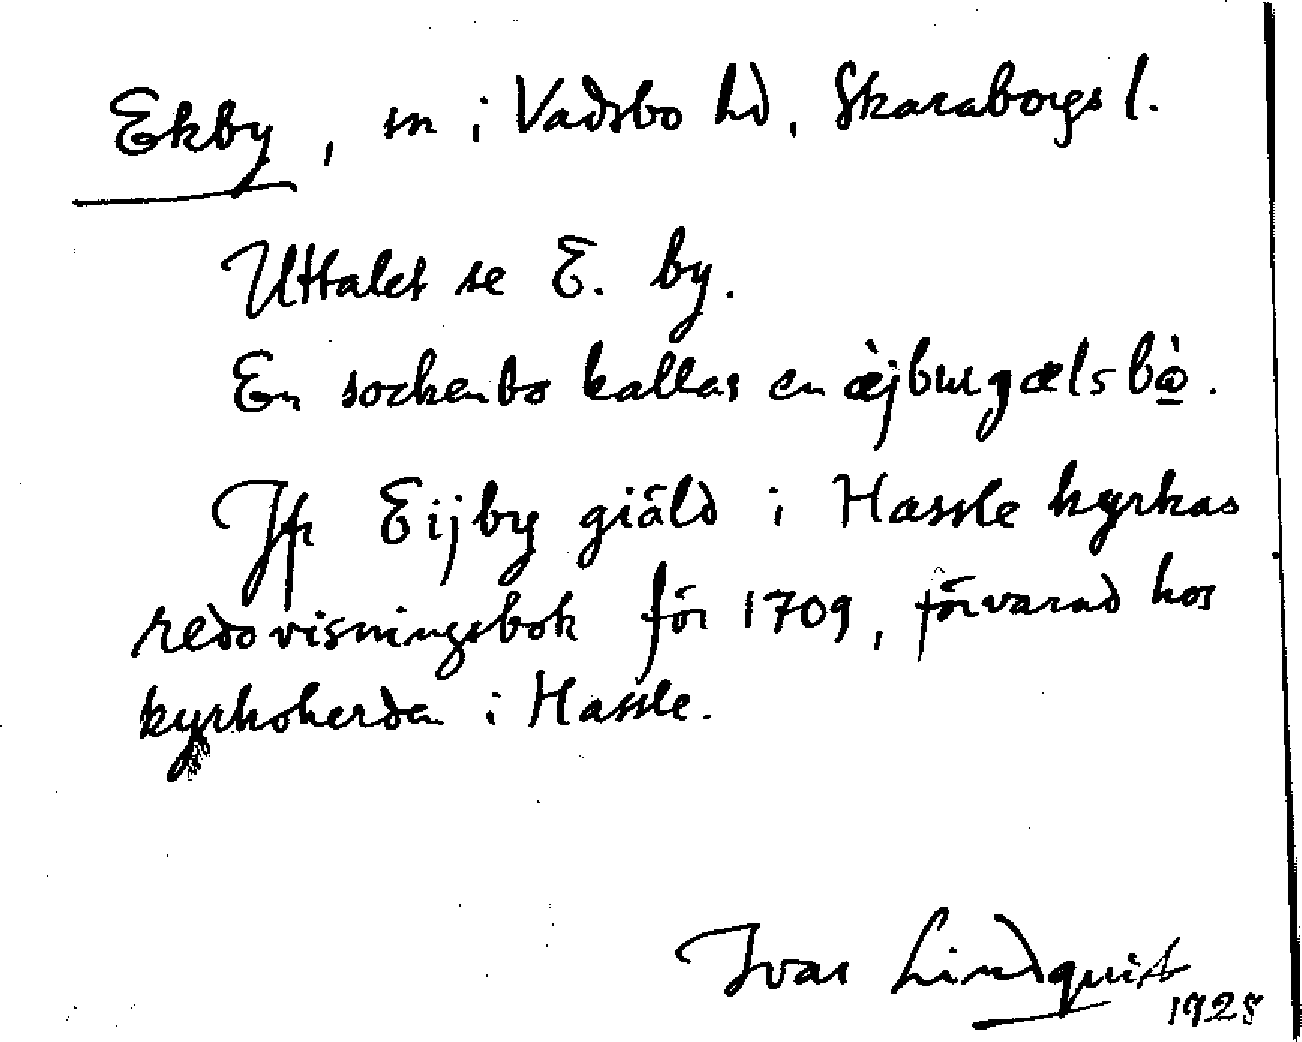 Ekby, sn i Vadsbo hd, Skaraborgs l.
Uttalet se E. by.
En sockenbo kallas en
Jfr Eijby giäld i Hassle kyrkas
redovisningsbok för 1709, förvarad hos
kyrkoherden i Hassle.
Ivar Lindquist
1928